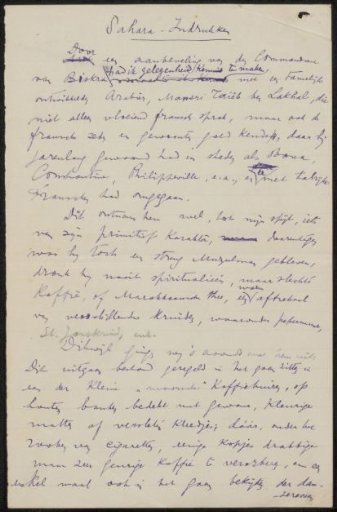 Sahara - Indrukken
Door een aanbeveling van den Commandant
van Biskra had ik gelegenheid kennis te maken met een tamelijk
ontwikkelde Arabier, Taïeb ben Lakhal, die
niet alleen vloeiend fransch sprak, maar ook de
fransche zeden en gewoonten goed kende, daar hij
jarenlang gewoond had in steden als Bona,
Constantine, Philippeville, e.a., en met talrijke
Franschen had omgegaan.
Dit ontnam hem wel, tot mijn spijt, iets
van zijn primitief karakter, desniettegen
was hij toch een streng Muzelman gebleven,
dronk hij nooit spiritualieën, maar slechts
Koffie, of Marokkaansche thee, een aftreksel
van verschillende kruiden, waaronder pepermunt,
St. Janskruid, enz.
Dikwijls ging ik 's avonds met hem uit.
Dit uitgaan bestond geregeld in het gaan zitten in
een der kleine "moorsche" Koffiehuizen, op
houten banken bedekt met gewone, kleurige
matten of versleten kleedjes; daar, onder het
rooken van cigaretten, eenige kopjes drabbige
maar zeer geurige koffie te verorberen, en een
enkel maal ook in het gaan bekijken der dan-
seressen